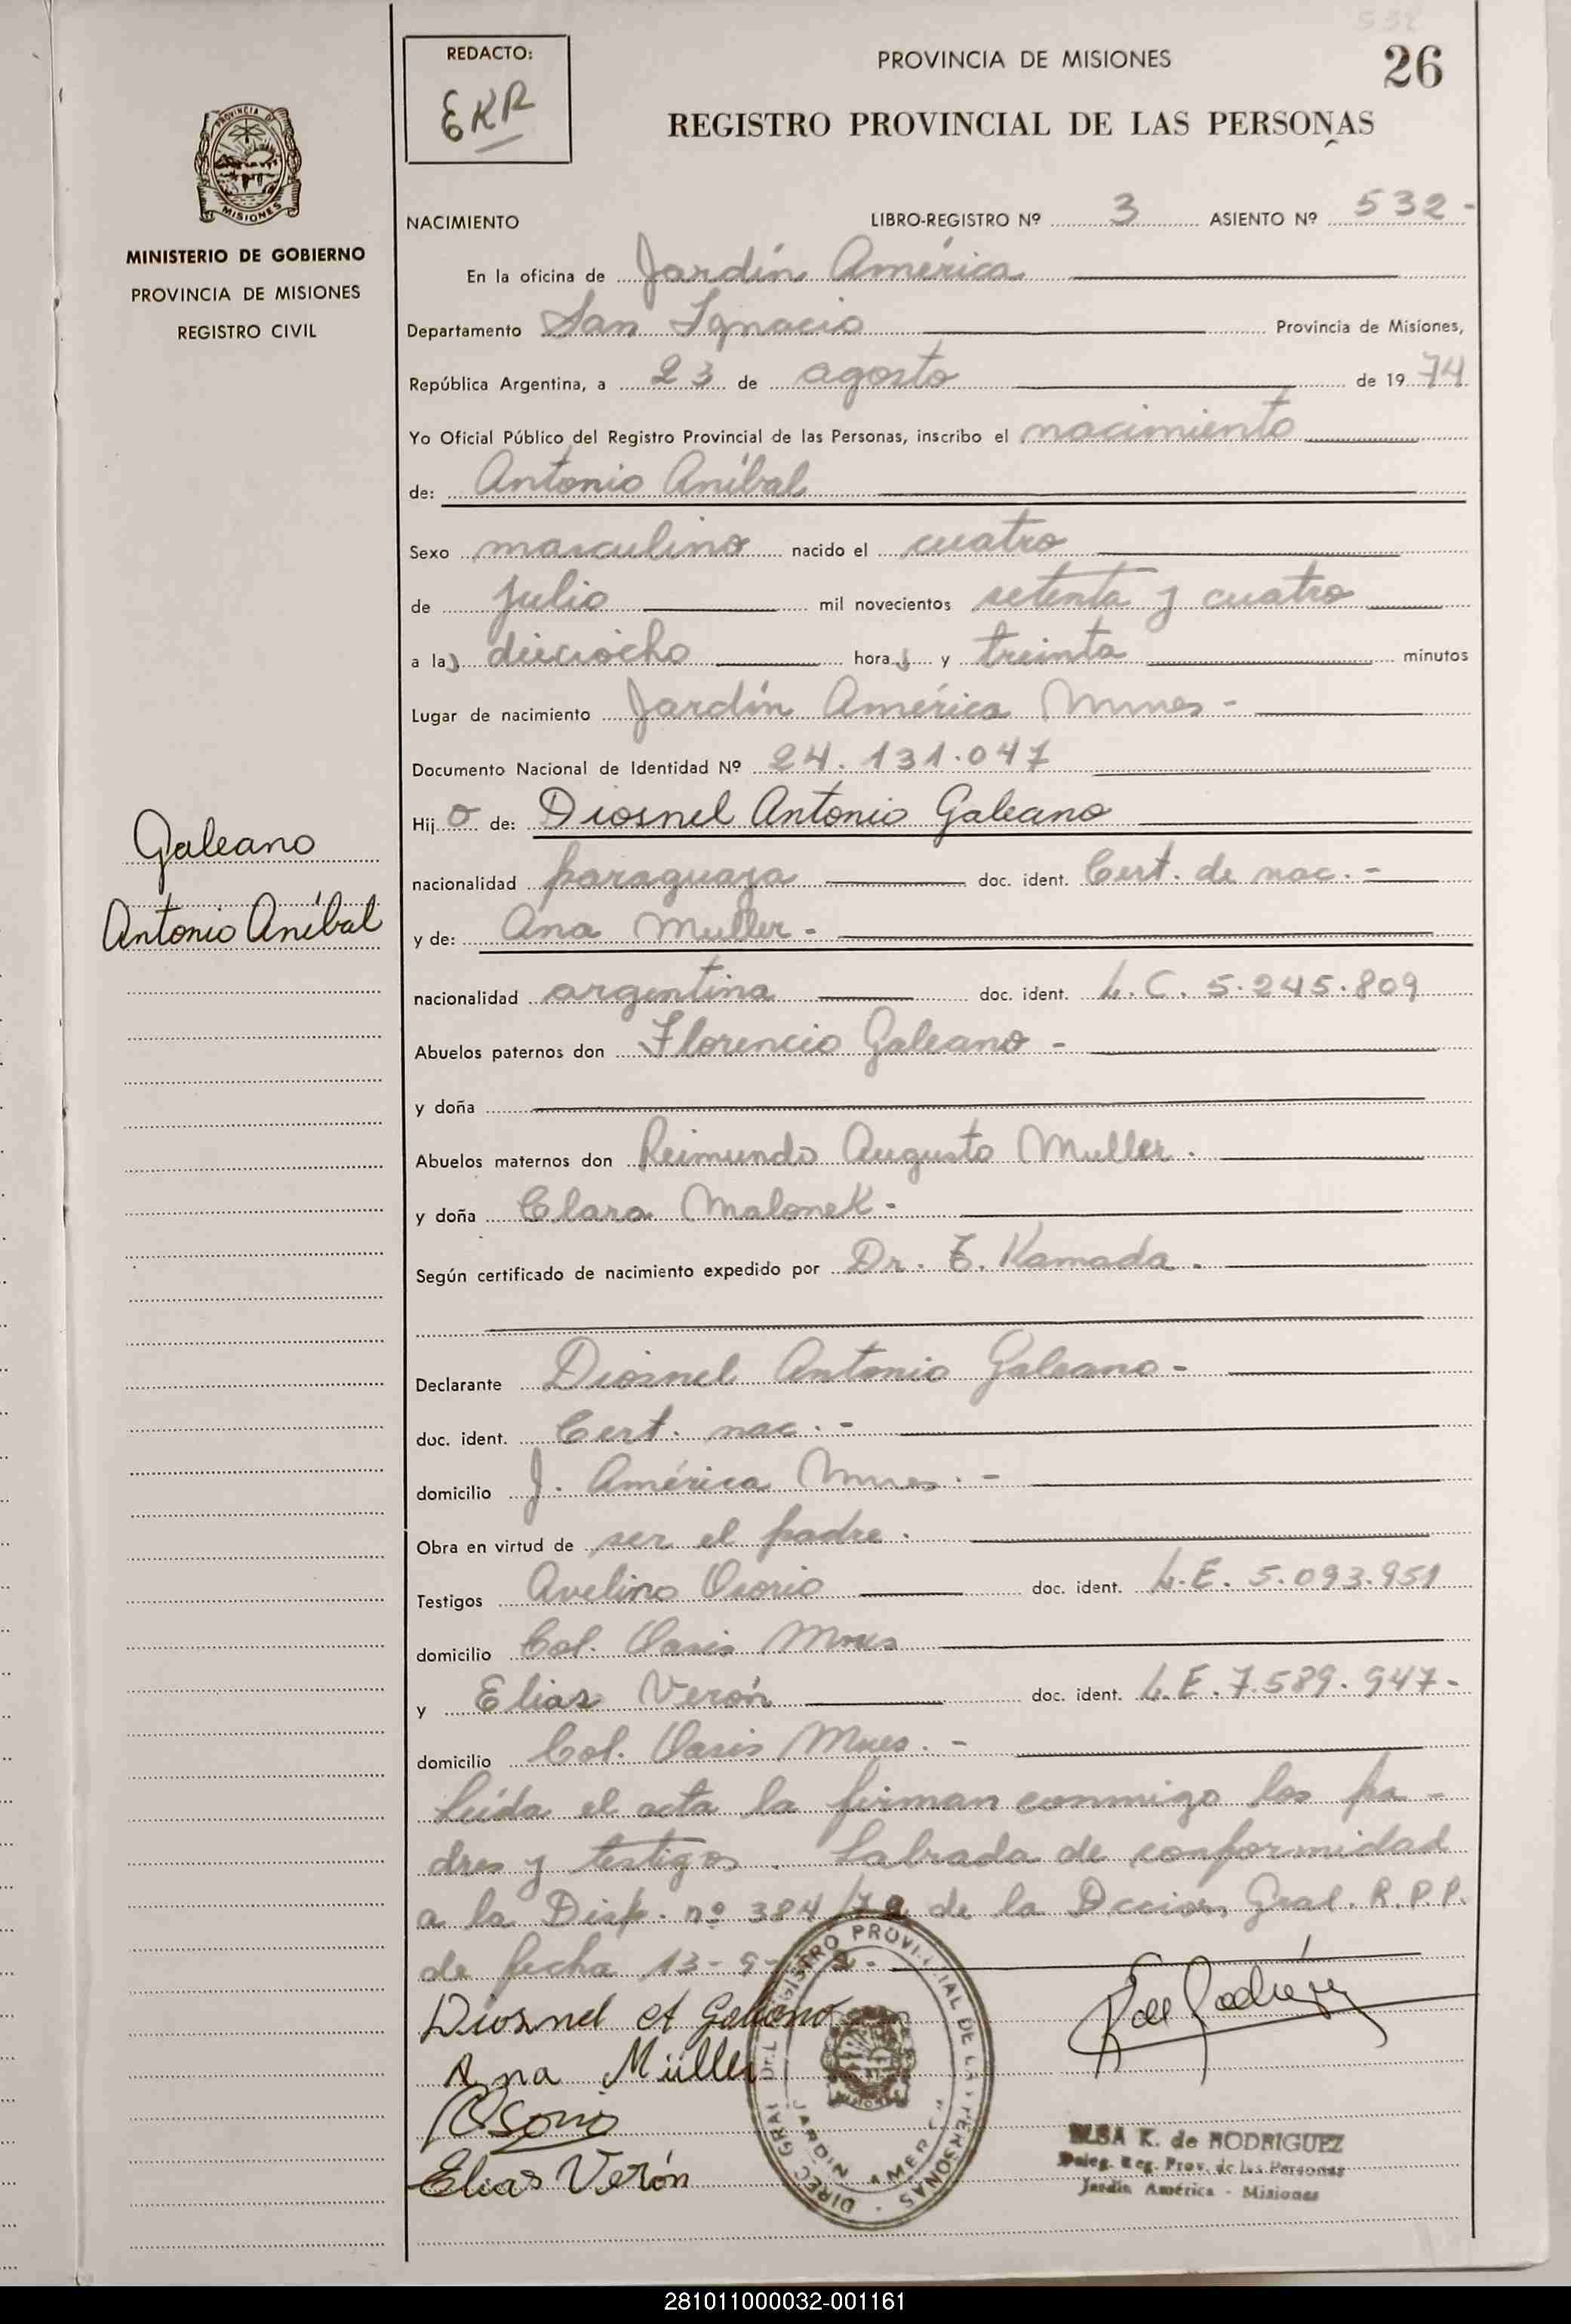 532
REDACTO:
EKR
PROVINCIA DE MISIONES
26
REGISTRO PROVINCIAL DE LAS PERSONAS
PROVINCIA DE
MISIONES
MINISTERIO DE GOBIERNO
PROVINCIA DE MISIONES
REGISTRO CIVIL
NACIMIENTO LIBRO-REGISTRO Nº 3 ASIENTO Nº 532-
En la oficina de Jardín América
Departamento San Ignacio Provincia de Misiones,
República Argentina, a 23 de agosto de 1974
Yo Oficial Público del Registro Provincial de las Personas, inscribo el nacimiento
de: Antonio Aníbal
Sexo masculino nacido el cuatro
de julio mil novecientos setenta y cuatro
a las dieciocho horas y treinta minutos
Lugar de nacimiento Jardín América Mnes-
Documento Nacional de Identidad Nº 24.131.047
Hijo de: Diosnel Antonio Galeano
nacionalidad paraguaya doc. ident. Cert. de nac.-
y de: Ana Muller-
nacionalidad argentina doc. ident. L.C. 5.245.809
Abuelos paternos don Florencio Galeano-
y doña
Abuelos maternos don Reimundo Augusto Muller.
y doña Clara Malonek-
Según certificado de nacimiento expedido por Dr. T. Kamada.
Declarante Diosnel Antonio Galeano-
doc. ident. Cert. nac.-
domicilio J. América Mnes.-
Obra en virtud de ser el padre.
Testigos Avelino Osorio doc. ident. L.E. 5.093.951
domicilio Col. Oasis Mnes
y Elias Verón doc. ident. L.E. 7.589.947-
domicilio Col. Oasis Mnes.-
Leída el acta la firman conmigo los pa-
dres y testigos. Labrada de conformidad
a la Disp. nº 384/72 de la Dccion. Gral. R.P.P.
de fecha 13-9-
Galeano
Antonio Aníbal
Diosnel A Galeano
Ana Müller
Osorio
Elias Verón
DIREC. GRAL. REGISTRO PROVINCIAL DE LAS PERSONAS
JARDIN AMERICA
MISIONES
ELSA K. de RODRIGUEZ
Deleg. Reg. Prov. de las Personas
Jardín América - Misiones
281011000032-001161